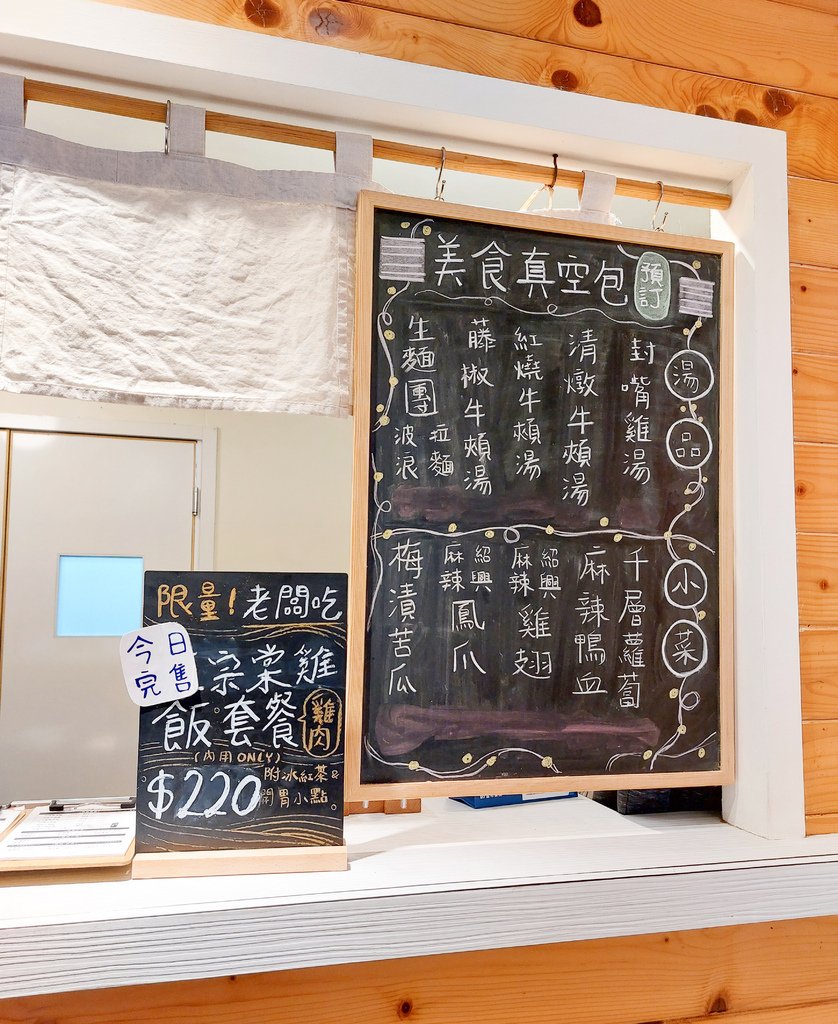 美食真空包 預訂
湯品
封嘴雞湯
清燉牛頰湯
紅燒牛頰湯
藤椒牛頰湯
生麵團 拉麵 波浪
小菜
千層蘿蔔
麻辣鴨血
紹興 麻辣 雞翅
紹興 麻辣 鳳爪
梅漬苦瓜
限量!老闆吃
今日完售
宗棠雞
飯套餐 雞肉
(內用ONLY)
$220 附冰紅茶&
開胃小點。